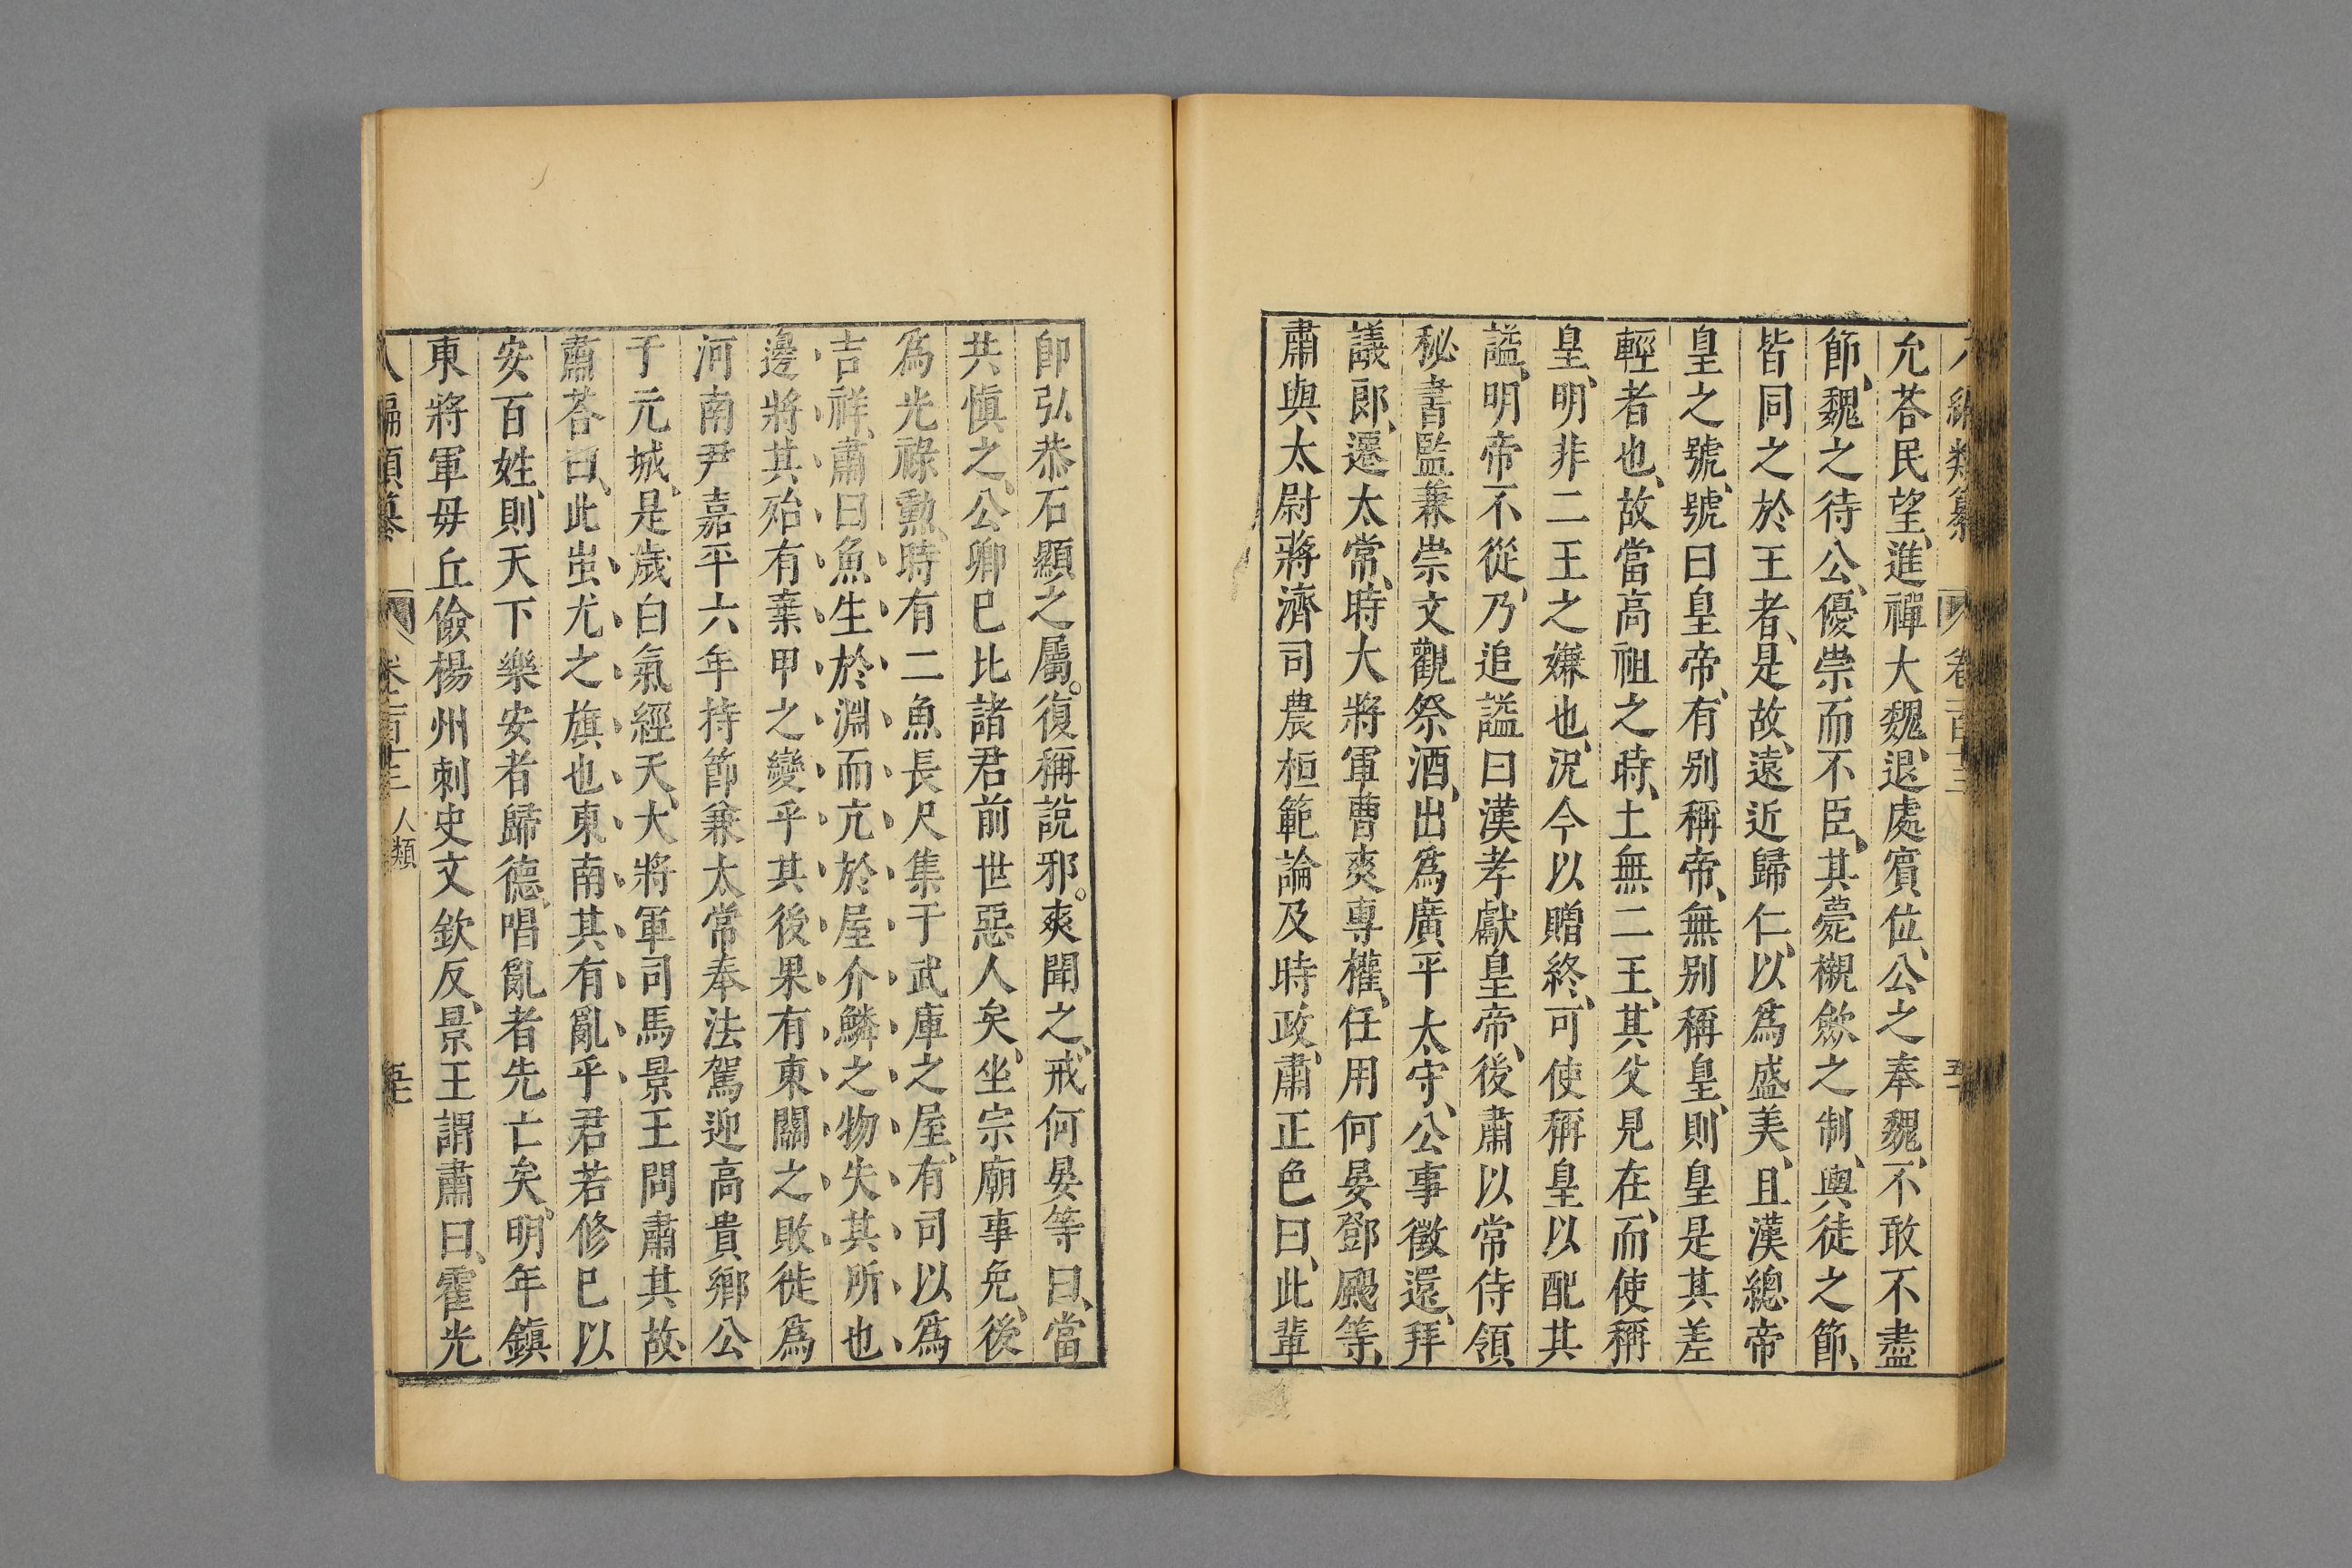 八編類纂 卷一百十三
允荅民望、進禪大魏、退處賓位、公之奉魏、不敢不盡
節、魏之待公、優崇而不臣、其薨櫬斂之制、輿徒之節、
皆同之於王者、是故遠近歸仁、以爲盛美、且漢總帝
皇之號、號曰皇帝、有別稱帝、無別稱皇、則皇是其差
輕者也、故當高祖之時、土無二王、其父見在、而使稱
皇、明非二王之嫌也、況今以贈終、可使稱皇以配其
諡、明帝不從、乃追諡曰漢孝獻皇帝、後肅以常侍領
秘書監兼崇文觀祭酒、出爲廣平太守、公事徵還、拜
議郎、遷太常、時大將軍曹爽專權、任用何晏鄧颺等、
肅與太尉蔣濟司農桓範論及時政、肅正色曰、此輩
卽弘恭石顯之屬。復稱說邪。爽聞之、戒何晏等曰、當
共慎之、公卿巳比諸君前世惡人矣、坐宗廟事免、後
爲光祿勲、時有二魚長尺集于武庫之屋、有司以爲
吉祥、肅曰魚生於淵而亢於屋介鱗之物失其所也
邊將其殆有棄甲之變乎其後果有東關之敗徙爲
河南尹嘉平六年持節兼太常奉法駕迎高貴鄉公
于元城、是歲白氣經天、大將軍司馬景王問肅其故、
肅荅曰、此蚩尤之旗也東南其有亂乎君若修巳以
安百姓、則天下樂安者歸德、唱亂者先亡矣、明年鎮
東將軍毋丘儉楊州刺史文欽反、景王謂肅曰、霍光
八編類纂 卷一百十三 人類